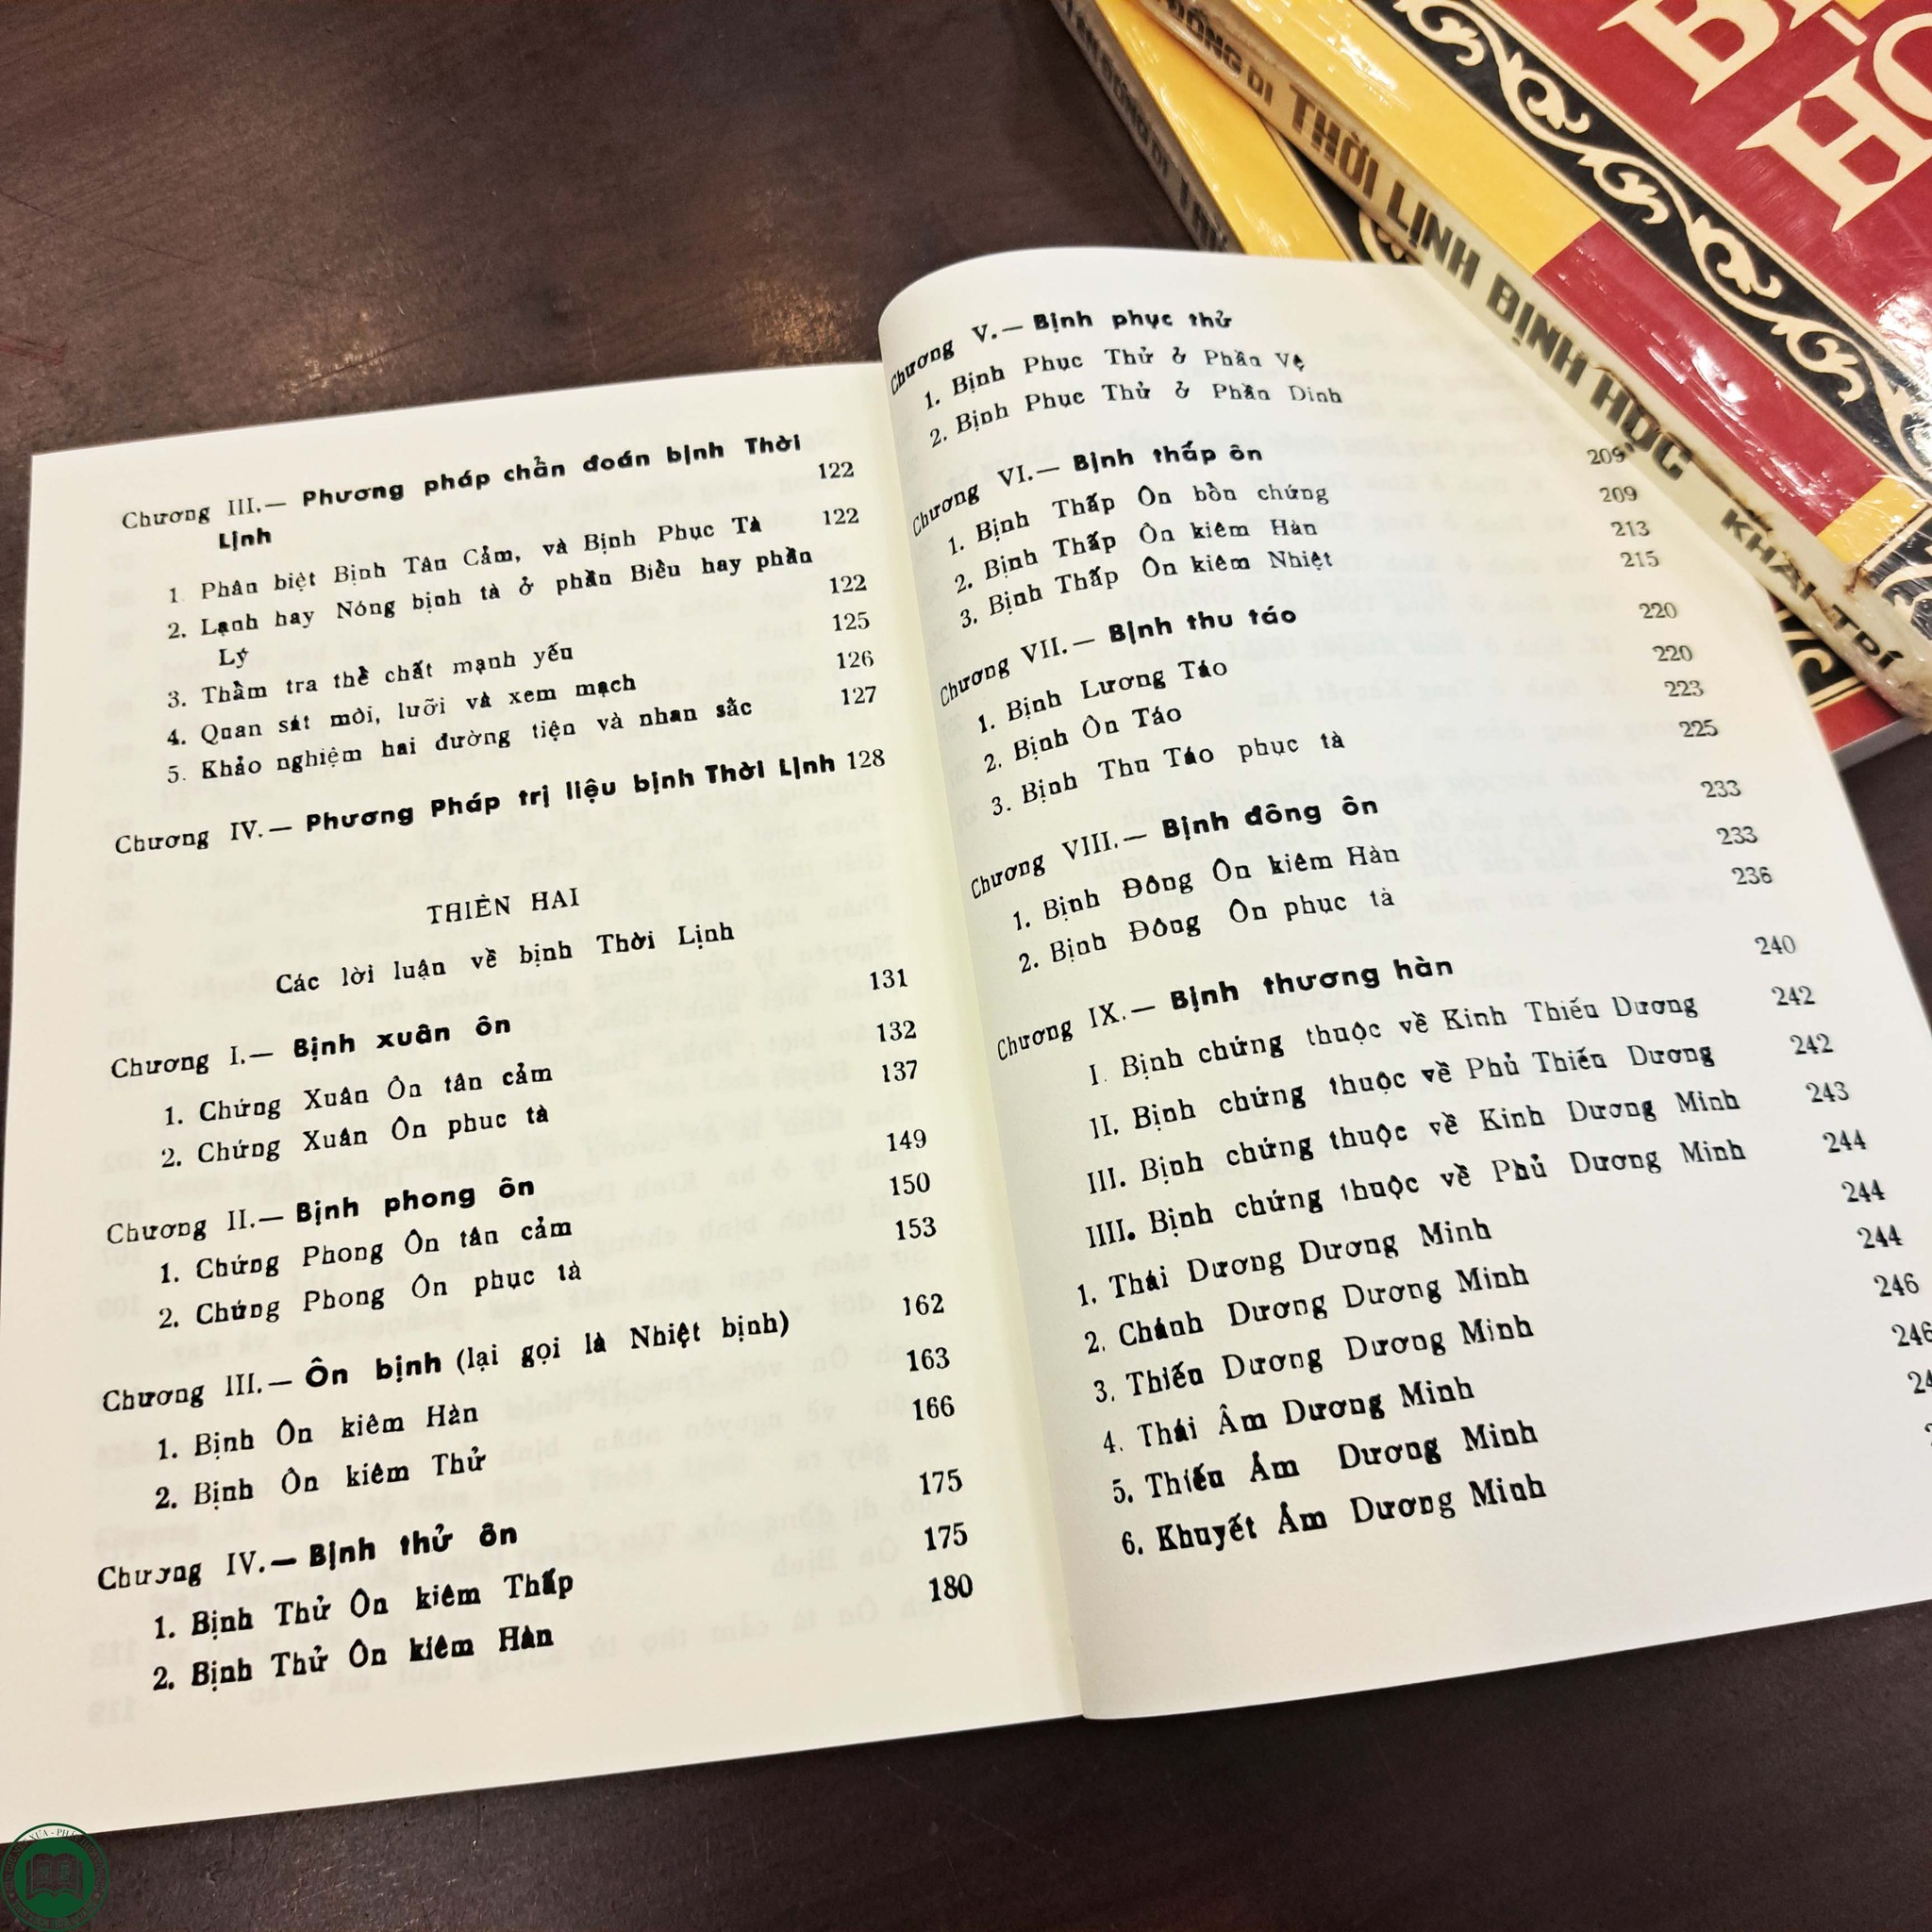 Chương III.— Phương pháp chẩn đoán bịnh Thời
Lịnh 122
1. Phân biệt Bịnh Tân Cảm, và Bịnh Phục Tà 122
2. Lạnh hay Nóng bịnh tà ở phần Biểu hay phần
Lý 122
3. Thẩm tra thể chất mạnh yếu 125
4. Quan sát môi, lưỡi và xem mạch 126
5. Khảo nghiệm hai đường tiện và nhan sắc 127
Chương IV.— Phương Pháp trị liệu bịnh Thời Lịnh 128
THIÊN HAI
Các lời luận về bịnh Thời Lịnh
131
Chương I.— Bịnh xuân ôn
1. Chứng Xuân Ôn tân cảm 132
2. Chứng Xuân Ôn phục tà 137
Chương II.— Bịnh phong ôn 149
1. Chứng Phong Ôn tân cảm 150
2. Chứng Phong Ôn phục tà 153
Chương III.— Ôn bịnh (lại gọi là Nhiệt bịnh) 162
1. Bịnh Ôn kiêm Hàn 163
2. Bịnh Ôn kiêm Thử 166
Chương IV.— Bịnh thử ôn 175
1. Bịnh Thử Ôn kiêm Thấp 175
2. Bịnh Thử Ôn kiêm Hàn 180
Chương V.— Bịnh phục thử
1. Bịnh Phục Thử ở Phần Vệ
2. Bịnh Phục Thử ở Phần Dinh
Chương VI.— Bịnh thấp ôn 209
1. Bịnh Thấp Ôn bổn chứng 209
2. Bịnh Thấp Ôn kiêm Hàn 213
3. Bịnh Thấp Ôn kiêm Nhiệt 215
Chương VII.— Bịnh thu táo 220
1. Bịnh Lương Táo 220
2. Bịnh Ôn Táo 223
3. Bịnh Thu Táo phục tà 225
Chương VIII.— Bịnh đông ôn 233
1. Bịnh Đông Ôn kiêm Hàn 233
2. Bịnh Đông Ôn phục tà 236
Chương IX.— Bịnh thương hàn 240
I. Bịnh chứng thuộc về Kinh Thiếu Dương 242
II. Bịnh chứng thuộc về Phủ Thiếu Dương 242
III. Bịnh chứng thuộc về Kinh Dương Minh 243
IIII. Bịnh chứng thuộc về Phủ Dương Minh 244
1. Thái Dương Dương Minh 244
2. Chánh Dương Dương Minh 244
3. Thiếu Dương Dương Minh 246
4. Thái Âm Dương Minh 246
5. Thiếu Âm Dương Minh
6. Khuyết Âm Dương Minh
THỜI LỊNH BỊNH HỌC KHAI TRÍ